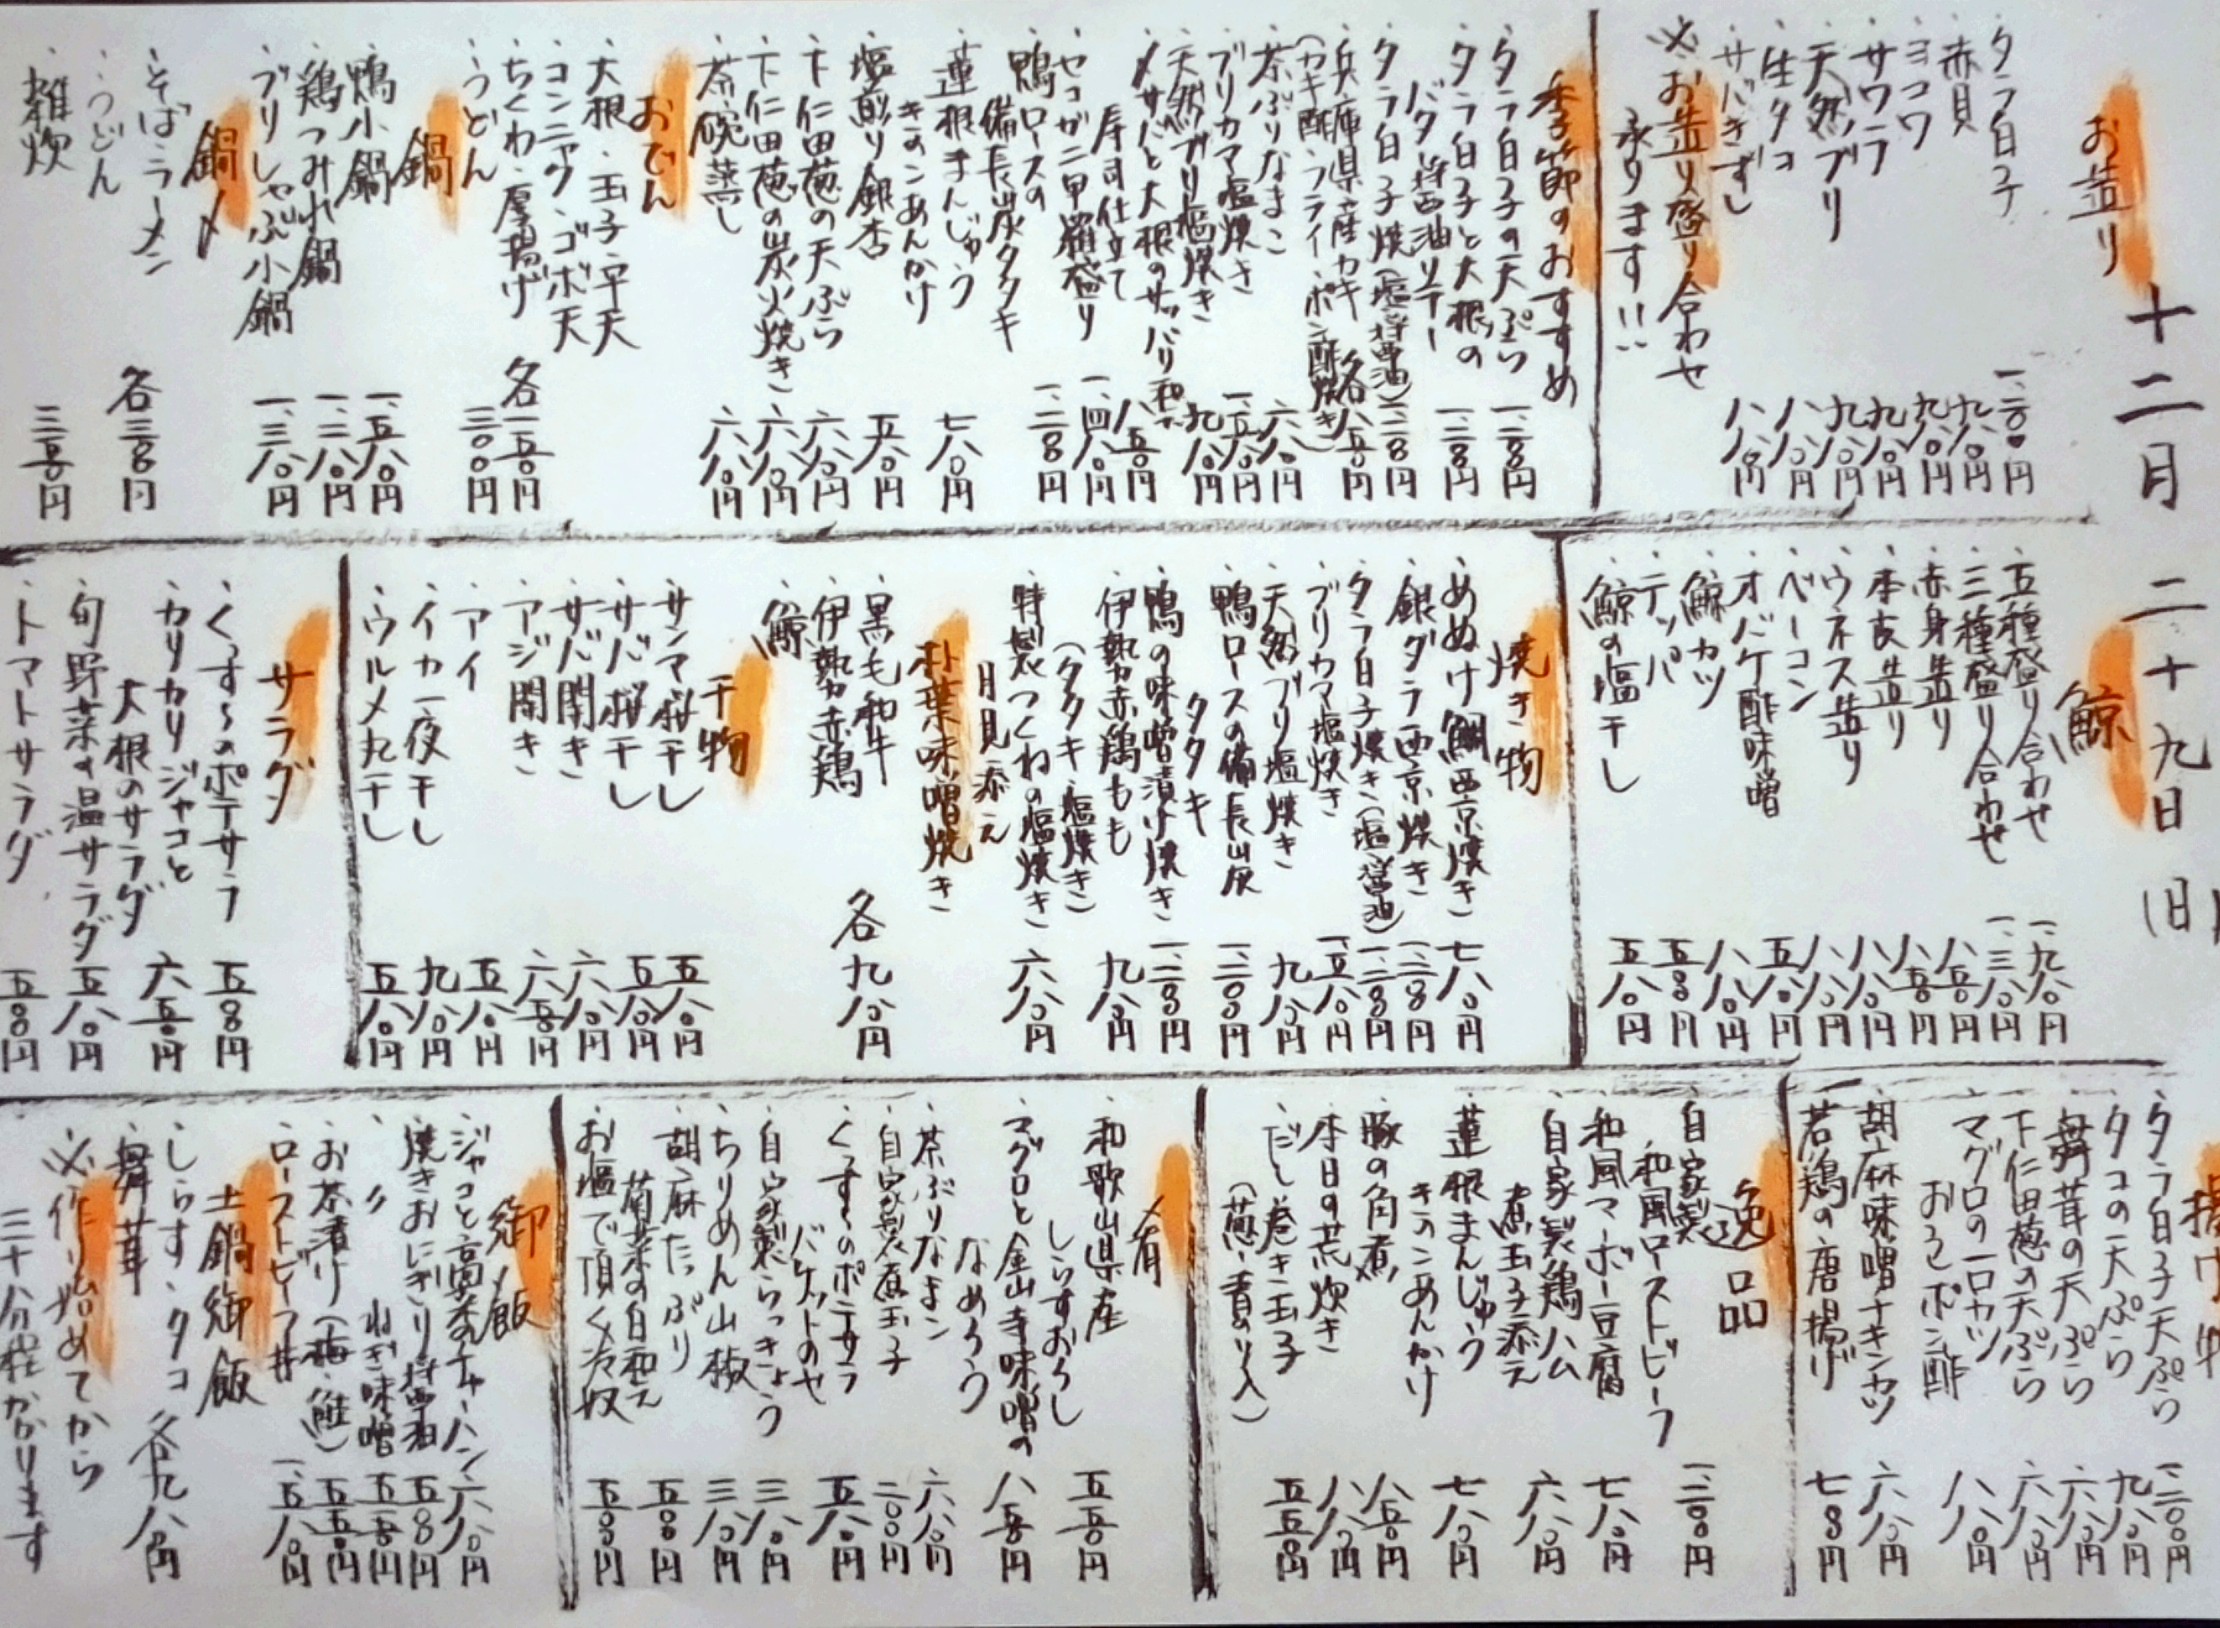 十二月二十九日(日)
お造り
・タラ白子 一、二〇〇円
・赤貝 九八〇円
・ヨコワ 九八〇円
・サワラ 九八〇円
・天然ブリ 九八〇円
・生タコ 八八〇円
・サバきずし 八八〇円
※お造り盛り合わせ
承ります!!
季節のおすすめ
・タラ白子の天ぷら 一、二〇〇円
・タラ白子と大根の
バター醤油ソテー 一、二〇〇円
・タラ白子焼(塩・醤油) 一、二〇〇円
・兵庫県産カキ 各八五〇円
(カキ酢・フライ・ポン酢焼き)
・茶ぶりなまこ 六八〇円
・ブリカマ塩焼き 一、五八〇円
・天然ブリ塩焼き 九八〇円
・〆サバと大根のサッパリ和え
寿司仕立て 八五〇円
・セコガニ甲羅盛り 一、四八〇円
・鴨ロースの
備長炭タタキ 一、二〇〇円
・蓮根まんじゅう
きのこあんかけ 七八〇円
・塩煎り銀杏 五八〇円
・下仁田葱の天ぷら 六八〇円
・下仁田葱の炭火焼き 六八〇円
・茶碗蒸し 六八〇円
おでん
・大根・玉子・平天
・コンニャク・ゴボ天
・ちくわ・厚揚げ 各一五〇円
・うどん 三〇〇円
鍋
・鴨小鍋 一、五八〇円
・鶏つみれ鍋 一、二八〇円
・ブリしゃぶ小鍋 一、三八〇円
鍋〆
・そば・ラーメン
・うどん 各三〇〇円
・雑炊 三五〇円
鯨
・五種盛り合わせ 一、九八〇円
・三種盛り合わせ 一、三八〇円
・赤身造り 八五〇円
・本皮造り 八五〇円
・ウネス造り 八八〇円
・ベーコン 八八〇円
・オバケ酢味噌 五八〇円
・鯨カツ 八八〇円
・テッパ 五〇〇円
・鯨の塩干し 五八〇円
焼き物
・めぬけ鯛西京焼き 七八〇円
・銀ダラ西京焼き 一、二〇〇円
・タラ白子焼き(塩・醤油) 一、二〇〇円
・ブリカマ塩焼き 一、五八〇円
・天然ブリ塩焼き 九八〇円
・鴨ロースの備長炭
タタキ 一、二〇〇円
・鴨の味噌漬け焼き 一、二〇〇円
・伊勢赤鶏もも
(タタキ・塩焼き) 九八〇円
・特製つくねの塩焼き
月見添え 六八〇円
朴葉味噌焼き
・黒毛和牛
・伊勢赤鶏
・鯨 各九八〇円
干物
・サンマ桜干し 五八〇円
・サバ桜干し 五八〇円
・サバ開き 六八〇円
・アジ開き 六五〇円
・アイ 五八〇円
・イカ一夜干し 九八〇円
・ウルメ丸干し 五八〇円
サラダ
・くっすーのポテサラ 五〇〇円
・カリカリジャコと
大根のサラダ 六五〇円
・旬野菜の温サラダ 五八〇円
・トマトサラダ 五〇〇円
揚げ物
・タラ白子天ぷら 一、二〇〇円
・タコの天ぷら 九八〇円
・舞茸の天ぷら 六八〇円
・下仁田葱の天ぷら 六八〇円
・マグロの一口カツ
おろしポン酢 八八〇円
・胡麻味噌チキンカツ 六八〇円
・若鶏の唐揚げ 七〇〇円
逸品
・自家製
和風ローストビーフ 一、二〇〇円
・和風マーボー豆腐 七八〇円
・自家製鶏ハム
煮玉子添え 六八〇円
・蓮根まんじゅう
きのこあんかけ 七八〇円
・豚の角煮 八五〇円
・本日の荒炊き 八八〇円
・だし巻き玉子
(葱・青のり入) 五五〇円
〆肴
・和歌山県産
しらすおろし 五五〇円
・マグロと金山寺味噌の
なめろう 八五〇円
・茶ぶりなまこ 六八〇円
・自家製煮玉子 二〇〇円
・くっすーのポテサラ
バケットのせ 五八〇円
・自家製らっきょう 三八〇円
・ちりめん山椒 三八〇円
・胡麻たっぷり
菊菜の白和え 五五〇円
・お塩で頂く冷奴 五〇〇円
御〆飯
・ジャコと高菜チャーハン 六八〇円
・焼きおにぎり醤油 五〇〇円
・〃 ねぎ味噌 五五〇円
・お茶漬け(梅・鮭) 五五〇円
・ローストビーフ丼 一、五八〇円
土鍋御飯
・しらす・タコ
・舞茸 各九八〇円
※作り始めてから
三十分程かかります